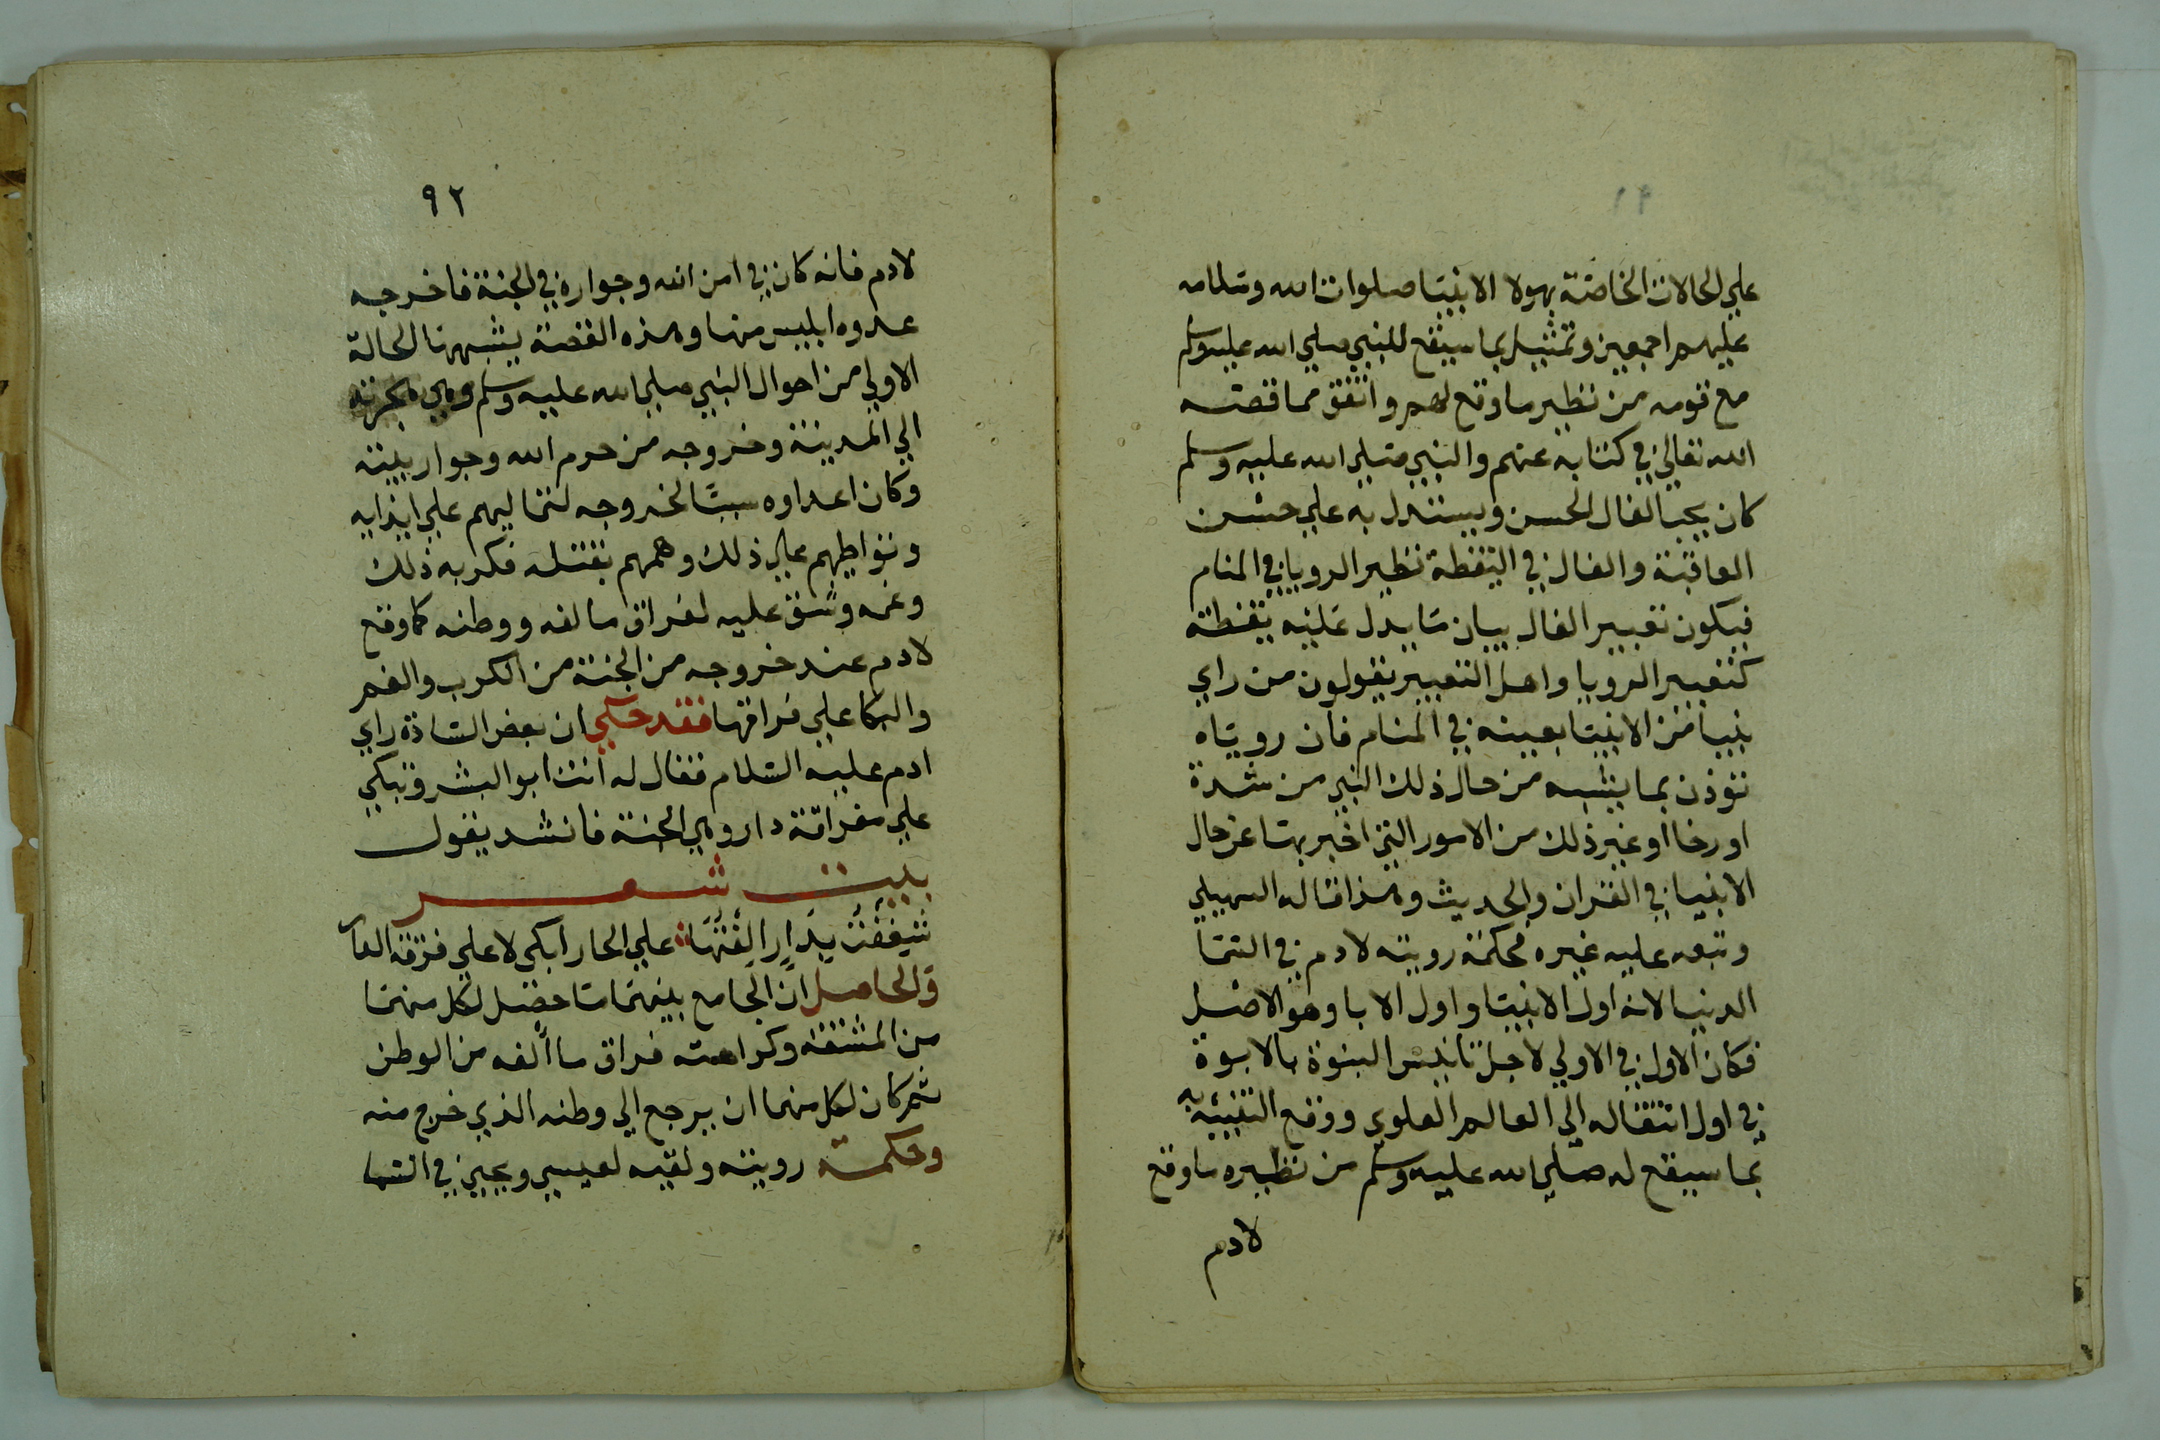 علي الحالات الخاصة بهولا الانبيا صلوات الله وسلامه
عليهم اجمعين وتمثيل بما سيقع للنبي صلي الله عليه وسلم
مع قومه من نظير ما وقع لهم واتفق مما قصه
الله تعالي في كتابه عنهم والنبي صلي الله عليه وسلم
كان يحب الفال الحسن ويستدل به علي حسن
العاقبة والفال في اليقظة نظير الرويا في المنام
فيكون تعبير الفال ببيان ما يدل عليه يقظة
كتعبير الرويا واهل التعبير يقولون من راي
نبيا من الانبيا بعينه في المنام فان روياه
توذن بما يشبه من حال ذلك النبي من شدة
او رخا او غير ذلك من الامور التي اخبر بها عن حال
الانبيا في القران والحديث وهذا قاله السهيلي
وتبعه عليه غيره فحكمة رويته لادم في السما
الدنيا لانه اول الانبيا واول الابا وهو الاصل
فكان الاول في الاولي لاجل تانيس البنوة بالابوة
في اول انتقاله الي العالم العلوي ووقع التنبيه
بما سيقع له صلي الله عليه وسلم من نظيره ما وقع
لادم
٩٢
لادم فانه كان في امن الله وجواره في الجنة فاخرجه
عدوه ابليس منها وهذه القصة يشبهها الحالة
الاولي من احوال النبي صلي الله عليه وسلم وهي هجرته
الي المدينة وخروجه من حرم الله وجوار بيته
وكان اعداوه سببا لخروجه لتماليهم علي ايذايه
وتواطيهم علي ذلك وهمهم بقتله فكربه ذلك
وغمه وشق عليه لفراق مالفه ووطنه كما وقع
لادم عند خروجه من الجنة من الكرب والغم
والبكا علي فراقها فقد حكي ان بعض الساذة راي
ادم عليه السلام فقال له انت ابو البشر وتبكي
علي مفراقة دار وهي الجنة فانشد يقول
بيت شعر
شيغفت بدار الفتها علي الجار ابكي لا علي فرقة الدار
والحاصل ان الجامع بينهما ما حصل لكل منهما
من المشقة وكراهته فراق ما ألفه من الوطن
ثم كان لكل منهما ان يرجع الي وطنه الذي خرج منه
وحكمة رويته ولقيه لعيسي ويحيي في السما